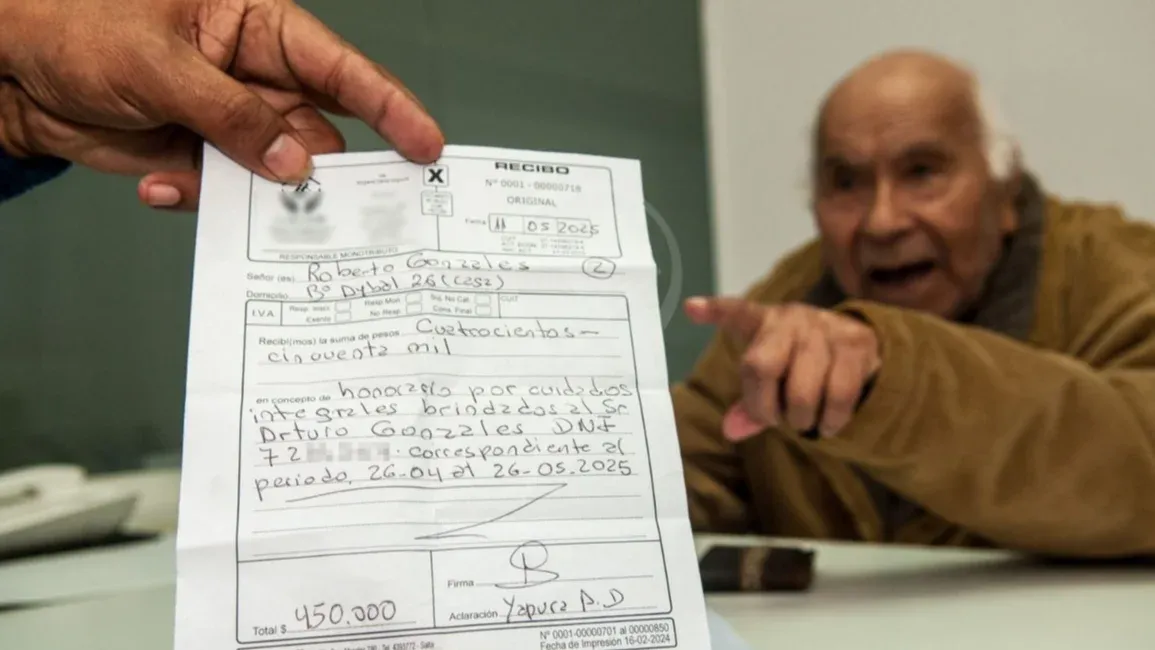 X
RECIBO
Nº 0001 - 00000718
ORIGINAL
Fecha 11 05 2025
RESPONSABLE MONOTRIBUTO
Señor (es) Roberto Gonzales 2
Domicilio Bº Dybal 26 (casa)
I.V.A. Resp. Insc. Resp Mon. Suj. No Cat. CUIT
Exento No Resp. Cons. Final
Recibi(mos) la suma de pesos Cuatrocientos-
cincuenta mil
en concepto de honorario por cuidados
integrales brindados al Sr
Arturo Gonzales DNI
72 correspondiente al
periodo, 26-04 al 26-05.2025
Total $ 450.000
Firma
Aclaración Yapura A.D
Nº 0001-00000701 al 00000850
Fecha de Impresión 16-02-2024